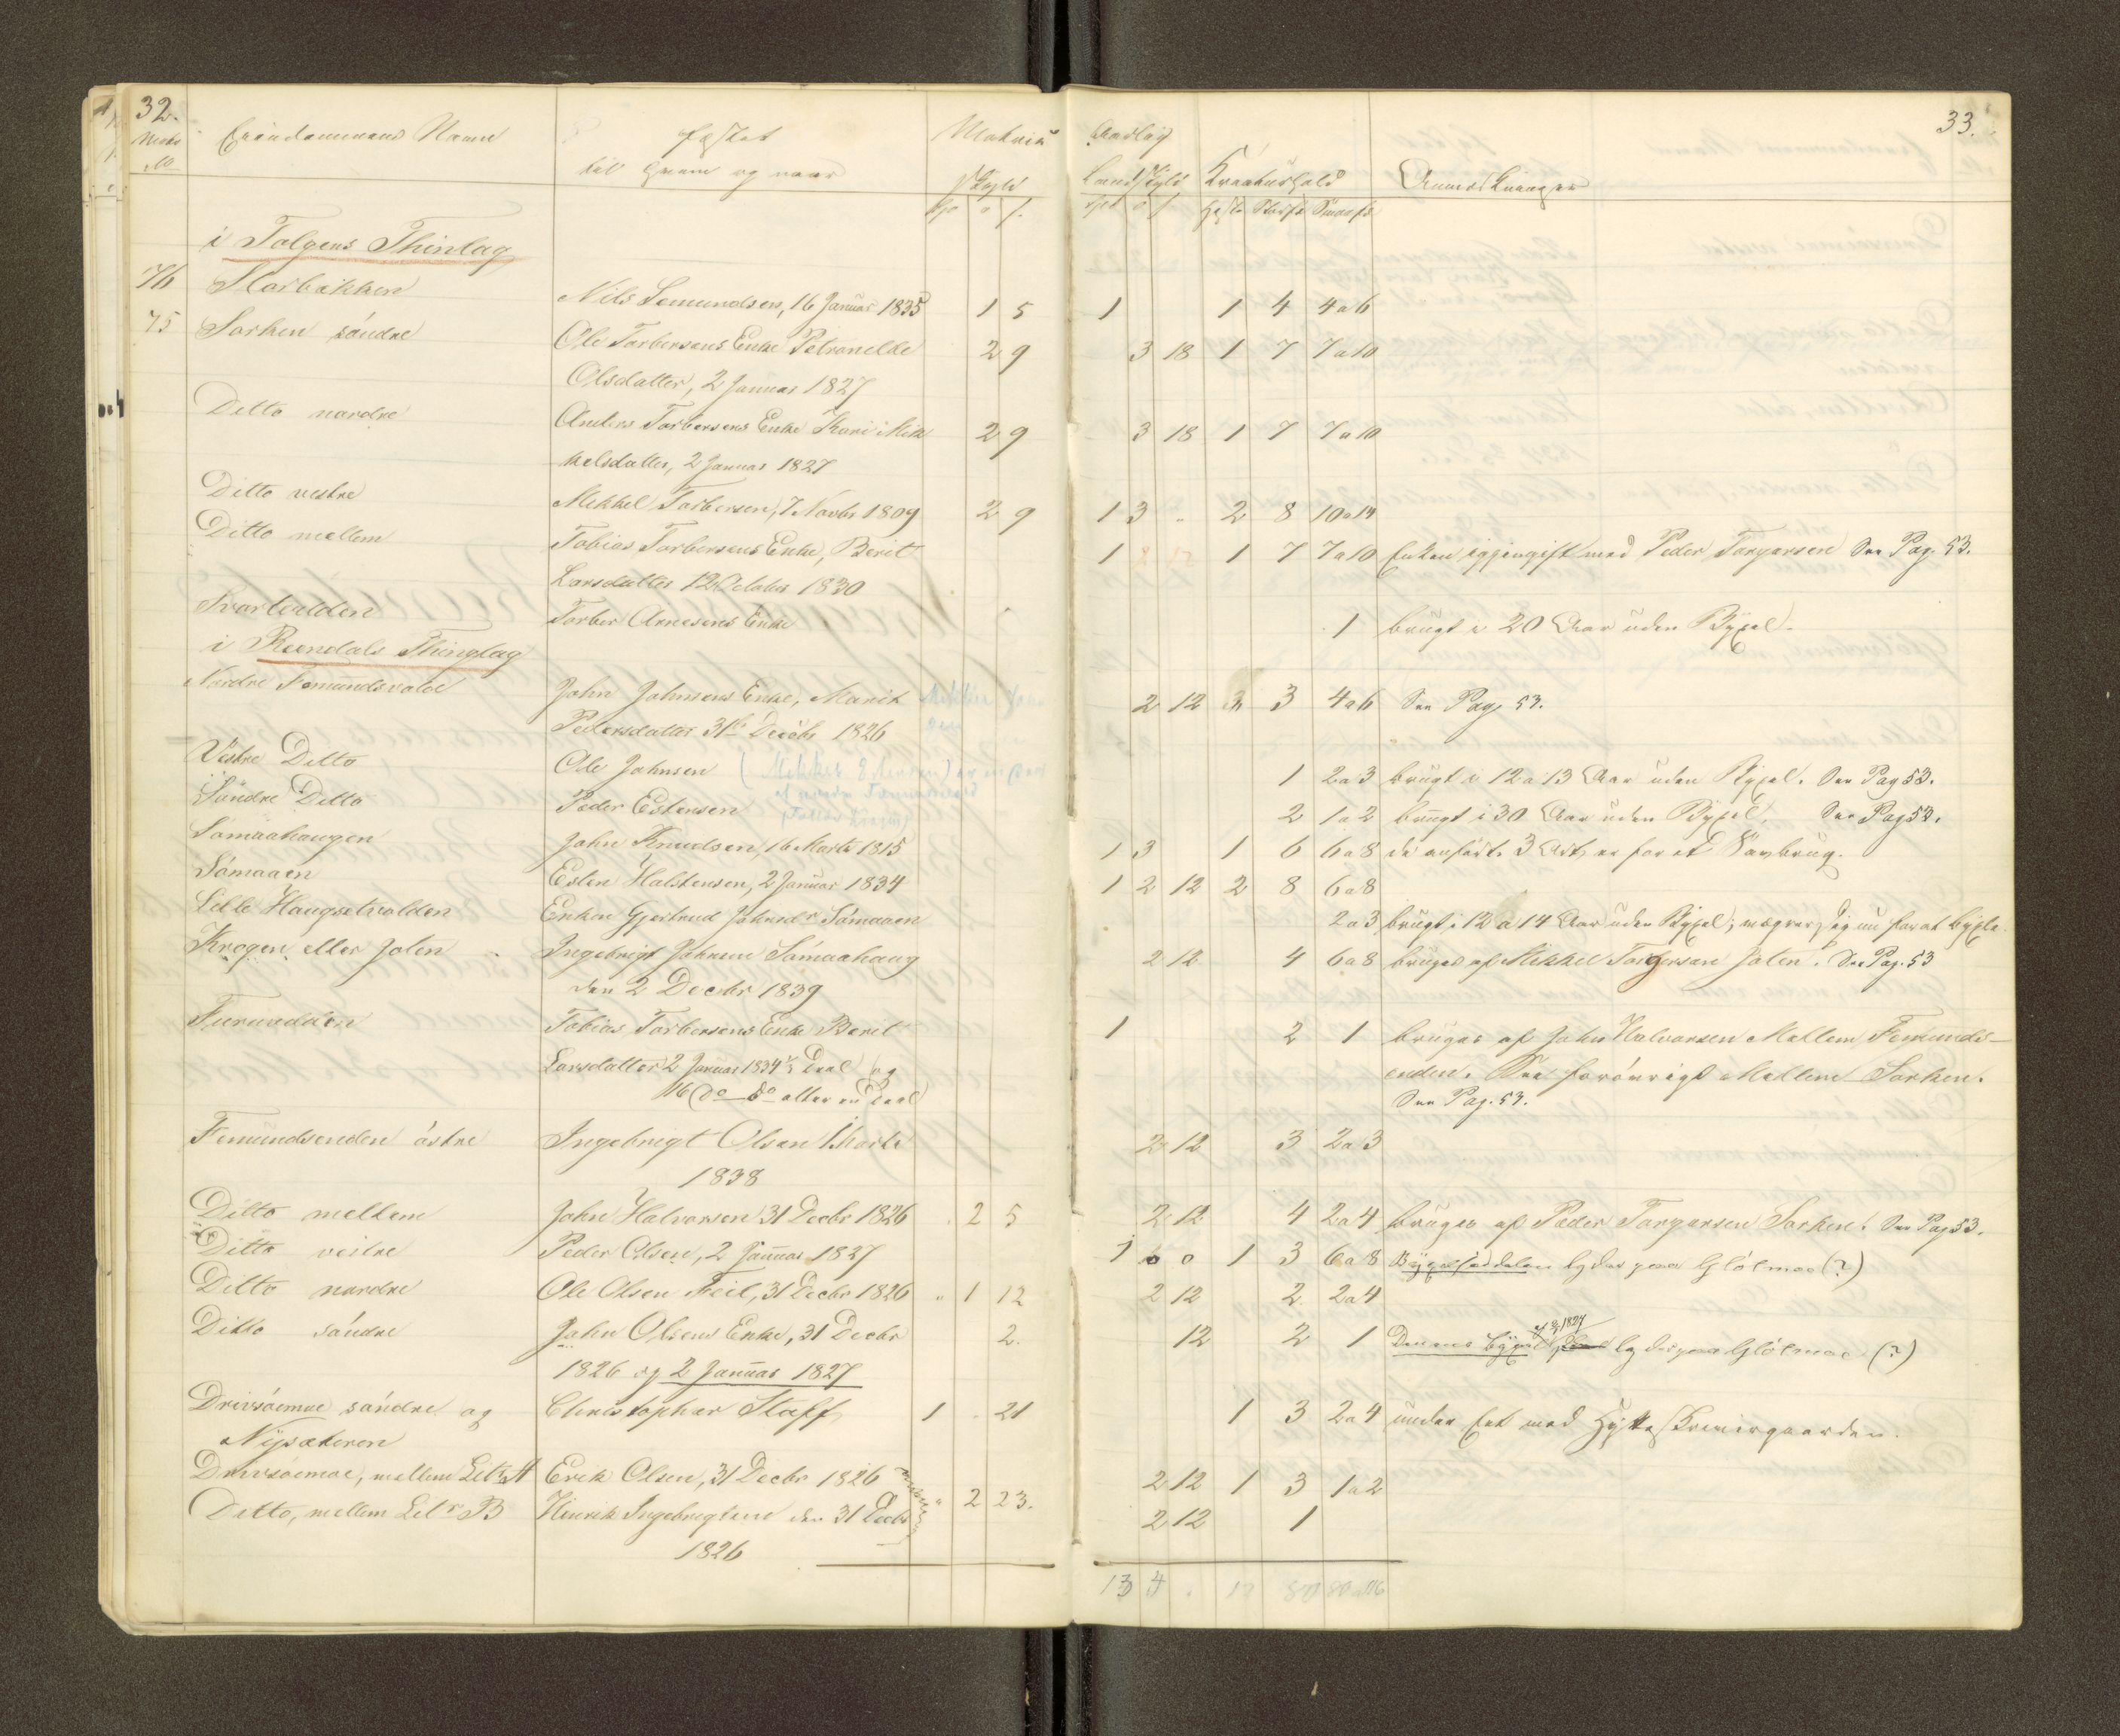 32.
Eiendommens Navn
fæstet
til hvem og naar
Skyld
i Tolgens Thinlag
76 Storbækken Nils Semundsen, 16 Januar 1835 1 5
75 Sorken søndre Ole Torbersens Enke Petronelle 2 9
Olsdatter, 2 Januar 1827
Ditto nordre Anders Torbersens Enke Kari Mik 2 9
kelsdatter, 2 Januar 1827
Ditto vestre Mikkel Torbersen, 7 Novbr 1809 2 9
Ditto mellem Tobias Torbersens Enke, Berit
Larsdatter 12 October 1830
Svartvolden Torber Arnesens Enke
i Rendals Thinglag
Nordre Femundsvold John Johnsens Enke, Marit
Pedersdatter 31te Decbr 1826
Vestre Ditto Ole Johnsen
Søndre Ditto Peder Estensen
Sömaahaugen John Knudsen, 16 Marts 1815
Sömaaen Esten Halstensen, 2 Januar 1834
Lille Haugsetvolden Enken Gjertrud Johnsdr Sömaaen
Krogen eller Jolen Ingebrigt Johnsen Sömaahaug
den 2 Decbr 1839
Furuodden Tobias Torbersens Enke Berit
Larsdatter 2 Januar 1834 Deel og
do do eller en Deel
Femundsenden östre Ingebrigt Olsen Marts
1838
Ditto mellem John Halvorsen 31 Decbr 1826 2 5
Ditto vestre Peder Olsen, 2 Januar 1837
Ditto nordre Ole Olsen Feil, 31 Decbr 1826 " 1 12
Ditto söndre John Olsens Enke, 31 Decbr 2.
1826 og 2 Januar 1827
Drivsöemoe söndre og Christopher Staff 1 21
Nysæteren
Drivsöemoe, mellem Litr A Erik Olsen, 31 Decbr 1826
Ditto, mellem Litr B Hinrik Ingebrigtsen den 31 Decbr " 2 23.
1826
33.
Aarlig
Landskyld Kreaturhold Anmærkninger
Heste Storfæ Smaafæ
1 1 4 4 a 6
3 18 1 7 7 a 10
3 18 1 7 7 a 10
1 3 " 2 8 10 a 14
1 1 7 7 a 10 Enken igjengift med Peder Torgersen See Pag. 53.
1 brugt i 20 Aar uden Byxel.
2 12 3 4 a 6 See Pag 53.
1 2 a 3 brugt i 12 a 13 Aar uden Byxel. See Pag 53.
2 1 a 2 brugt i 30 Aar uden Byxel. See Pag 53.
1 3 1 6 6 a 8 de anförte 3 Ort er for et Saugbrug.
1 2 12 2 8 6 a 8
2 a 3 brugt i 12 a 14 Aar uden Byxel; vægrer sig nu for at byxle.
2 12 4 6 a 8 bruges af Mikkel Torgersen Jolen. See Pag. 53
1 2 1 bruges af John Halvorsen Mellem Femunds-
enden. See forövrigt Mellem Sorken.
See Pag. 53.
2 12 3 2 a 3
2 12 4 2 a 4 bruges af Peder Torgersen Sorken. See Pag 53.
1 0 0 1 3 6 a 8 Byxelseddelen lyder paa Glötmoe (?)
2 12 2 2 a 4
12 2 1 Dennes Byxel lyder paa Glötmoe (?)
1 3 2 a 4 under Eet med Hytteskrivergaarden.
2 12 1 3 1 a 2
2 12 1